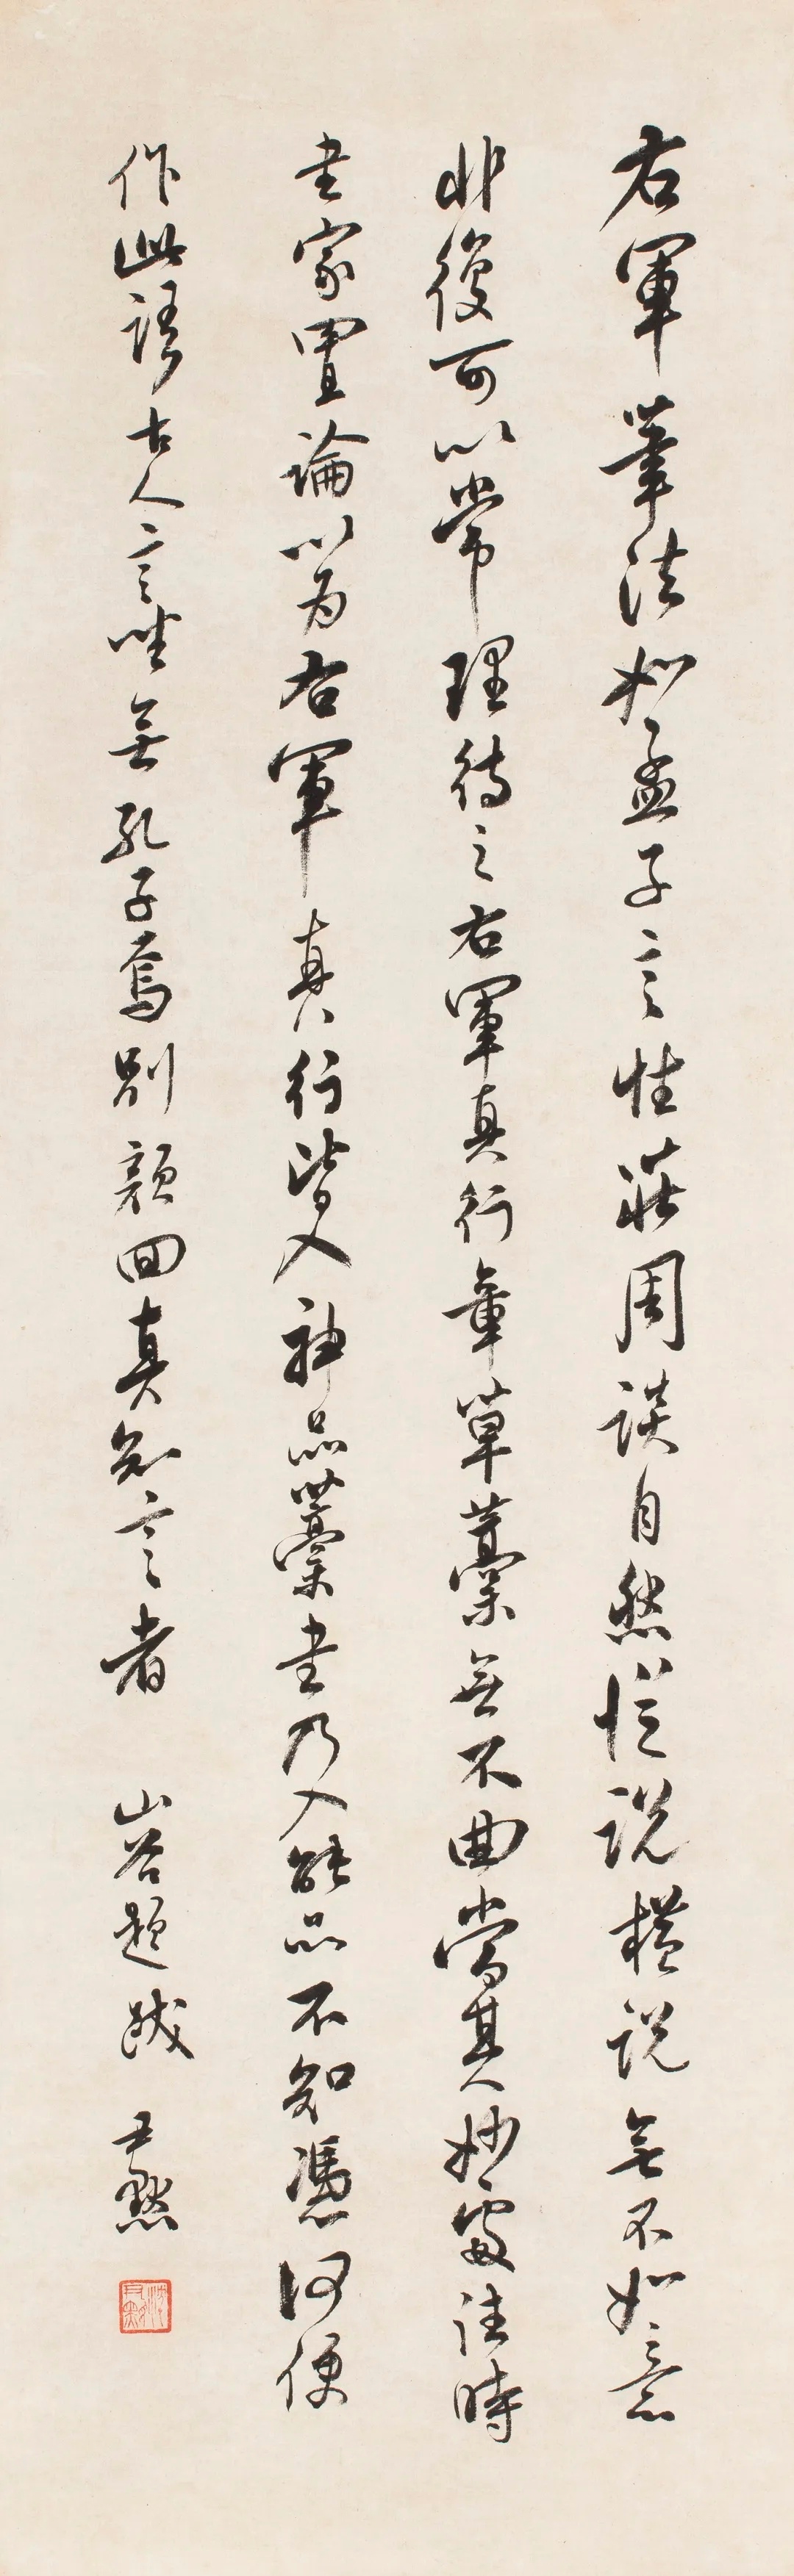 右軍筆法如孟子言性莊周談自然從說橫說無不如意
非復可以常理待之右軍真行章草藁無不曲當其妙處往時
書家置論以為右軍真行皆入神品藁書乃入能品不知憑何便
作此語古人言坐無孔子焉別顏回真知言者 山谷題跋 尹默
沈尹默